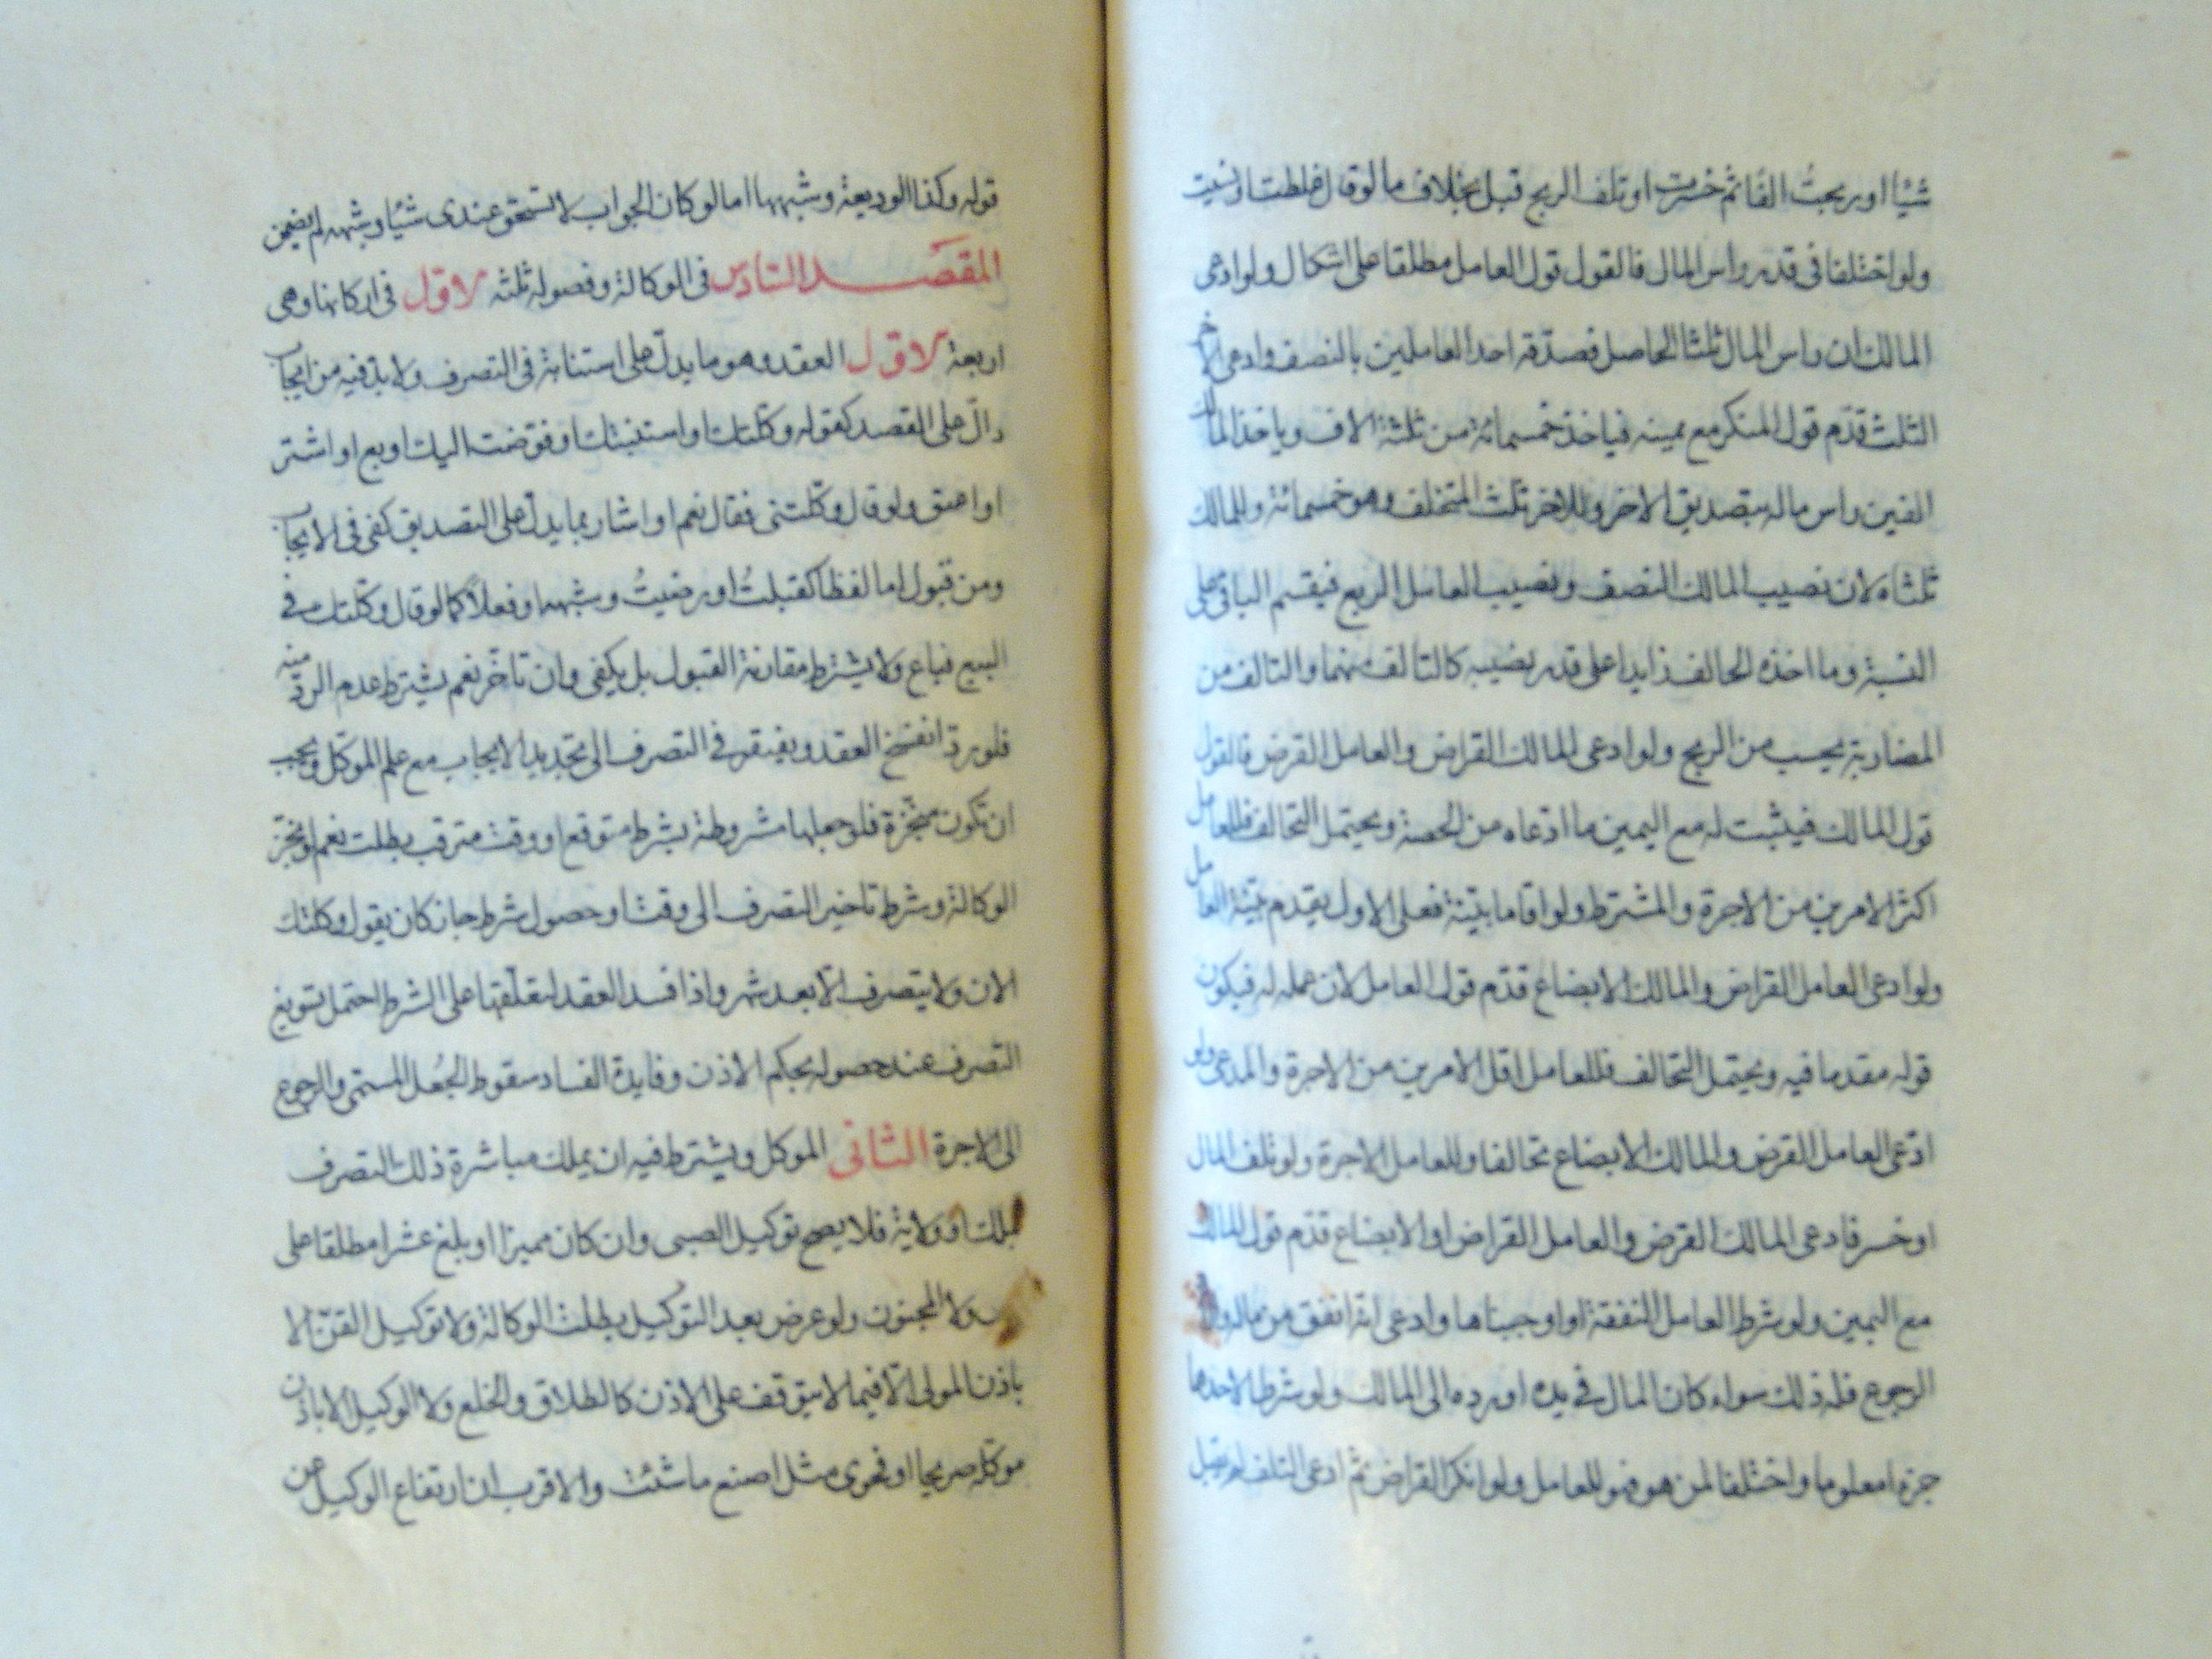 شيئا او ربحت الفا ثم خسرت او تلف الربح قبل بخلاف ما لو قال غلطت او نسيت
ولو اختلفا فى قدر راس المال فالقول قول العامل مطلقا على اشكال ولو ادعى
المالك ان راس المال ثلثا الحاصل فصدقه احد العاملين بالنصف وادعى الاخر
الثلث قدم قول المنكر مع يمينه فياخذ خمسمائة من ثلثة الاف وياخذ المالك
الفين راس ماله بتصديق الاخر وللاخر ثلث المتخلف وهو خمسمائة وللمالك
ثلثاه لان نصيب المالك النصف ونصيب العامل الربع فيقسم الباقى على
النسبة وما اخذه الحالف زايدا على قدر نصيبه كالتالف منهما والتالف من
المضاربة يحسب من الربح ولو ادعى المالك القراض والعامل القرض فالقول
قول المالك فيثبت له مع اليمين ما ادعاه من الحصة ويحتمل التحالف فللعامل
اكثر الامرين من الاجرة والمشترط ولو اقاما بينة فعلى الاول يقدم بينة العامل
ولو ادعى العامل القراض والمالك الابضاع قدم قول العامل لان عمله له فيكون
قوله مقدما فيه ويحتمل التحالف فللعامل اقل الامرين من الاجرة والمدعى ولو
ادعى العامل القرض والمالك الابضاع تحالفا وللعامل الاجرة ولو تلف المال
او خسر فادعى المالك القرض والعامل القراض او الابضاع قدم قول المالك
مع اليمين ولو شرط العامل النفقة او اوجبناها وادعى انه انفق من ماله واراد
الرجوع فله ذلك سواء كان المال فى يده او رده الى المالك ولو شرطا لاحدهما
جزءا معلوما واختلفا لمن هو فهو للعامل ولو انكر القراض ثم ادعى التلف لم يقبل
قوله وكذا الوديعة وشبهها اما لو كان الجواب لا تستحق عندى شيئا وشبهه لم يضمن
المقصد السادس فى الوكالة وفصوله ثلثه الاول فى اركانها وهى
اربعة الاول العقد وهو ما يدل على استنابة فى التصرف ولا بد فيه من ايجاب
دال على القصد كقوله وكلتك او استنبتك او فوضت اليك او بع او اشتر
او اعتق ولو قال وكلتنى فقال نعم او اشار بما يدل على التصديق كفى فى الايجاب
ومن قبول اما لفظا كقبلت او رضيت وشبهه او فعلا كما لو قال وكلتك فى
البيع فباع ولا يشترط مقارنة القبول بل يكفى وان تاخر نعم يشترط عدم الرد منه
فلو رد انفسخ العقد ويفتقر فى التصرف الى تجديد الايجاب مع علم الموكل ويجب
ان تكون منجزة فلو جعلها مشروطة بشرط متوقع او وقت مترقب بطلت نعم لو نجز
الوكالة وشرط تاخير التصرف الى وقت او حصول شرط جاز كان يقول وكلتك
الان ولا يتصرف الا بعد شهر واذا فسد العقد لتعلقها على الشرط احتمل تسويغ
التصرف عند حصوله بحكم الاذن وفايدة الفساد سقوط الجعل المسمى والرجوع
الى الاجرة الثانى الموكل ويشترط فيه ان يملك مباشرة ذلك التصرف
بملك او ولاية فلا يصح توكيل الصبى وان كان مميزا او بلغ عشرا مطلقا على
ولا المجنون ولو عرض بعد التوكيل بطلت الوكالة ولا توكيل القن الا
باذن المولى الا فيما لا يتوقف على الاذن كالطلاق والخلع ولا الوكيل الا باذن
موكله صريحا او فحوى مثل اصنع ما شئت والاقرب ان ارتفاع الوكيل عن